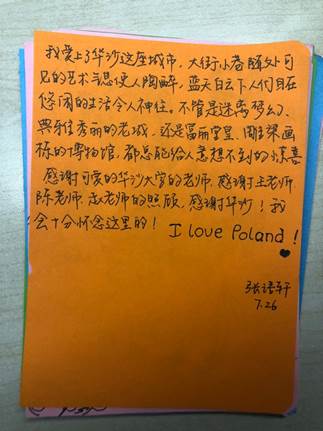 我爱上了华沙这座城市，大街小巷随处可
见的艺术气息使人陶醉，蓝天白云下人们自在
悠闲的生活令人神往，不管是迷离梦幻、
典雅秀丽的老城，还是富丽堂皇、雕梁画
栋的博物馆，都总能给人意想不到的惊喜
感谢可爱的华沙大学的老师，感谢王老师
陈老师，赵老师的照顾，感谢华沙！我
会十分怀念这里的！ I love Poland !
张语轩
7.26